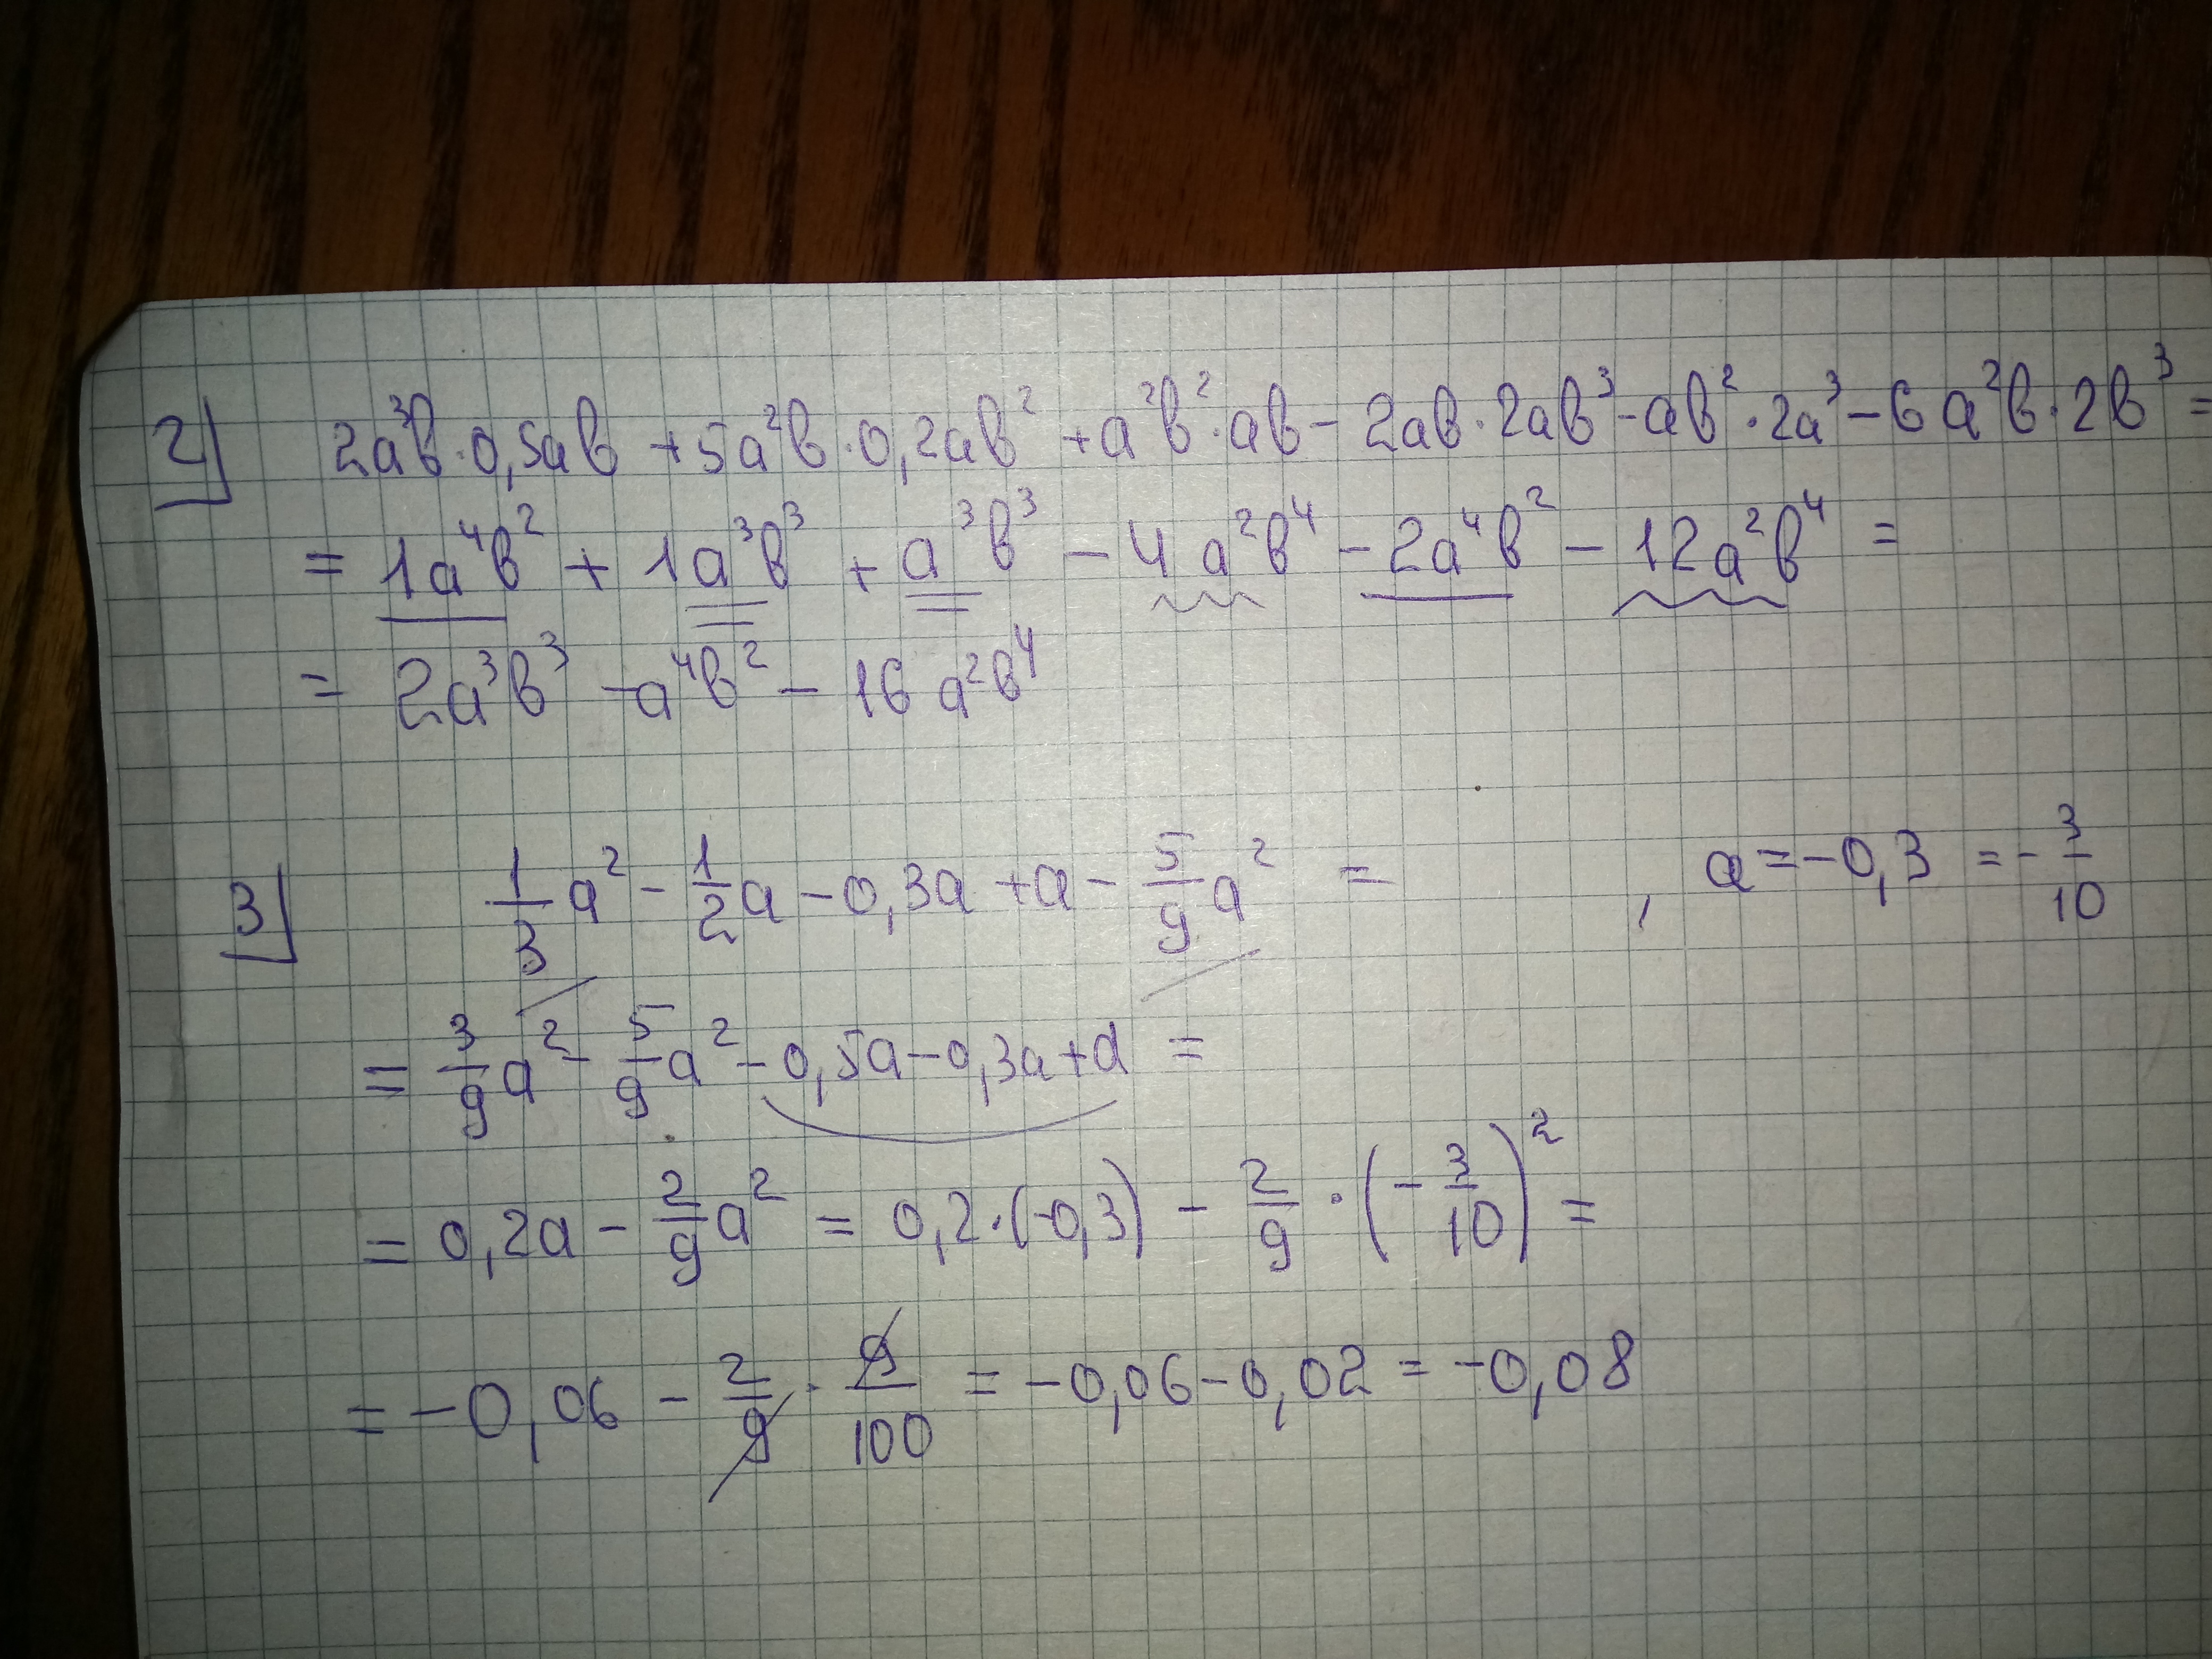 2) 2a³b·0,5ab + 5a²b·0,2ab² + a²b²·ab - 2ab·2ab³ - ab²·2a³ - 6a²b·2b³ =
= 1a⁴b² + 1a³b³ + a³b³ - 4a²b⁴ - 2a⁴b² - 12a²b⁴ =
= 2a³b³ - a⁴b² - 16a²b⁴
3) 1/3 a² - 1/2 a - 0,3a + a - 5/9 a² = , a = -0,3 = -3/10
= 3/9 a² - 5/9 a² - 0,5a - 0,3a + a =
= 0,2a - 2/9 a² = 0,2·(-0,3) - 2/9 · (-3/10)² =
= -0,06 - 2/9 · 9/100 = -0,06 - 0,02 = -0,08